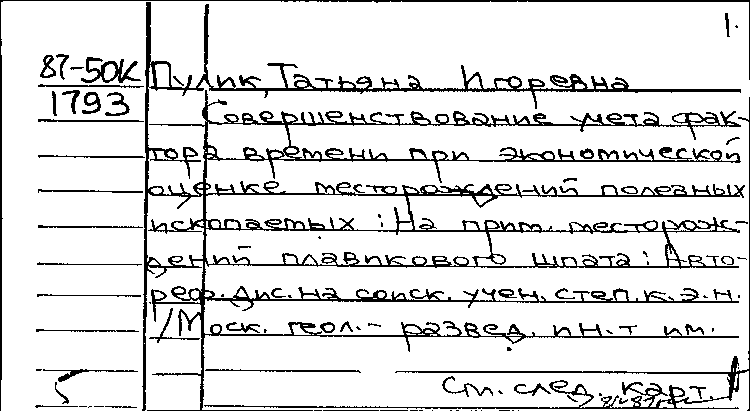 1.
87-50К Пулик, Татьяна Игоревна
1793 Совершенствование учета фак-
тора времени при экономической
оценке месторождений полезных
ископаемых : На прим. месторож-
дений плавикового шпата : Авто-
реф. дис. на соиск. учен. степ. к. э. н.
/ Моск. геол. - развед. ин-т им.
См. след. карт.